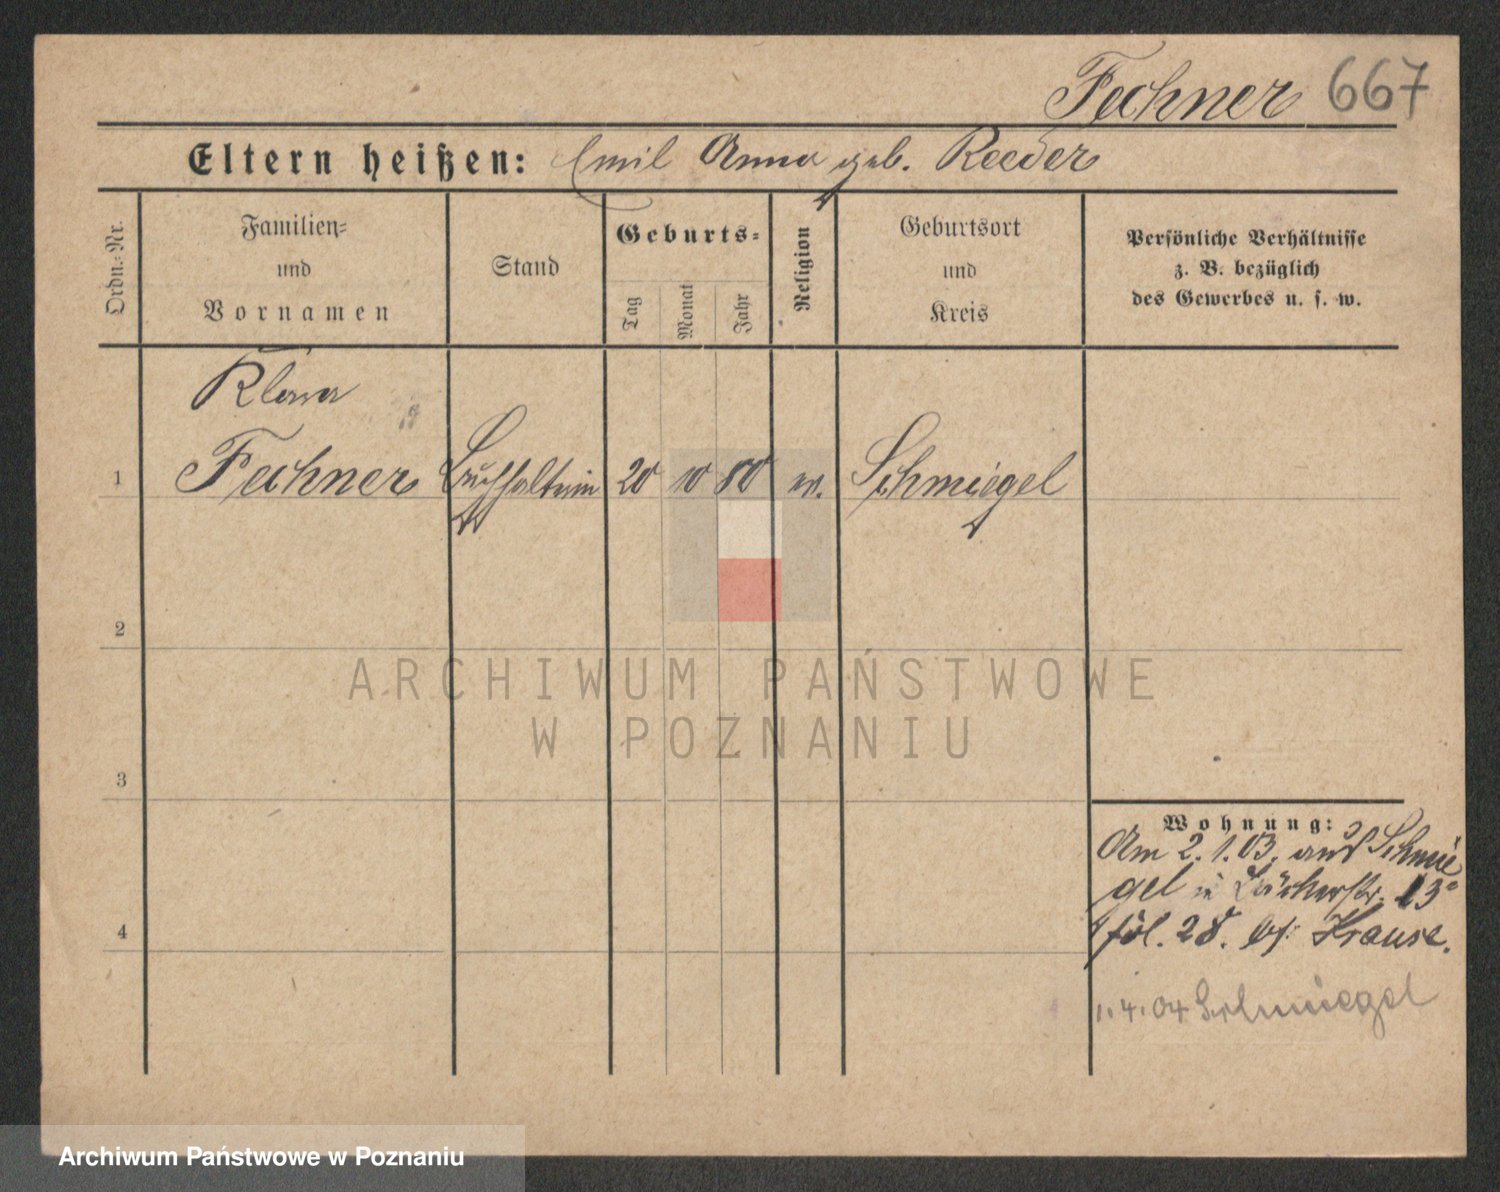 Fechner 667
Eltern heißen: Emil Anna geb. Reeder
Ordn.-Nr.
Familien=
und
Vornamen
Stand
Geburts=
Tag
Monat
Jahr
Religion
Geburtsort
und
Kreis
Persönliche Verhältnisse
z. B. bezüglich
des Gewerbes u. s. w.
Klara
1 Fechner Buchhalterin 20 10 80 ev. Schmiegel
2
3
4
ARCHIWUM PAŃSTWOWE
W POZNANIU
Wohnung:
Am 2.1.03. aus Schmie
gel in 13
28. bei Krause.
1.4.04 Schmiegel
Archiwum Państwowe w Poznaniu